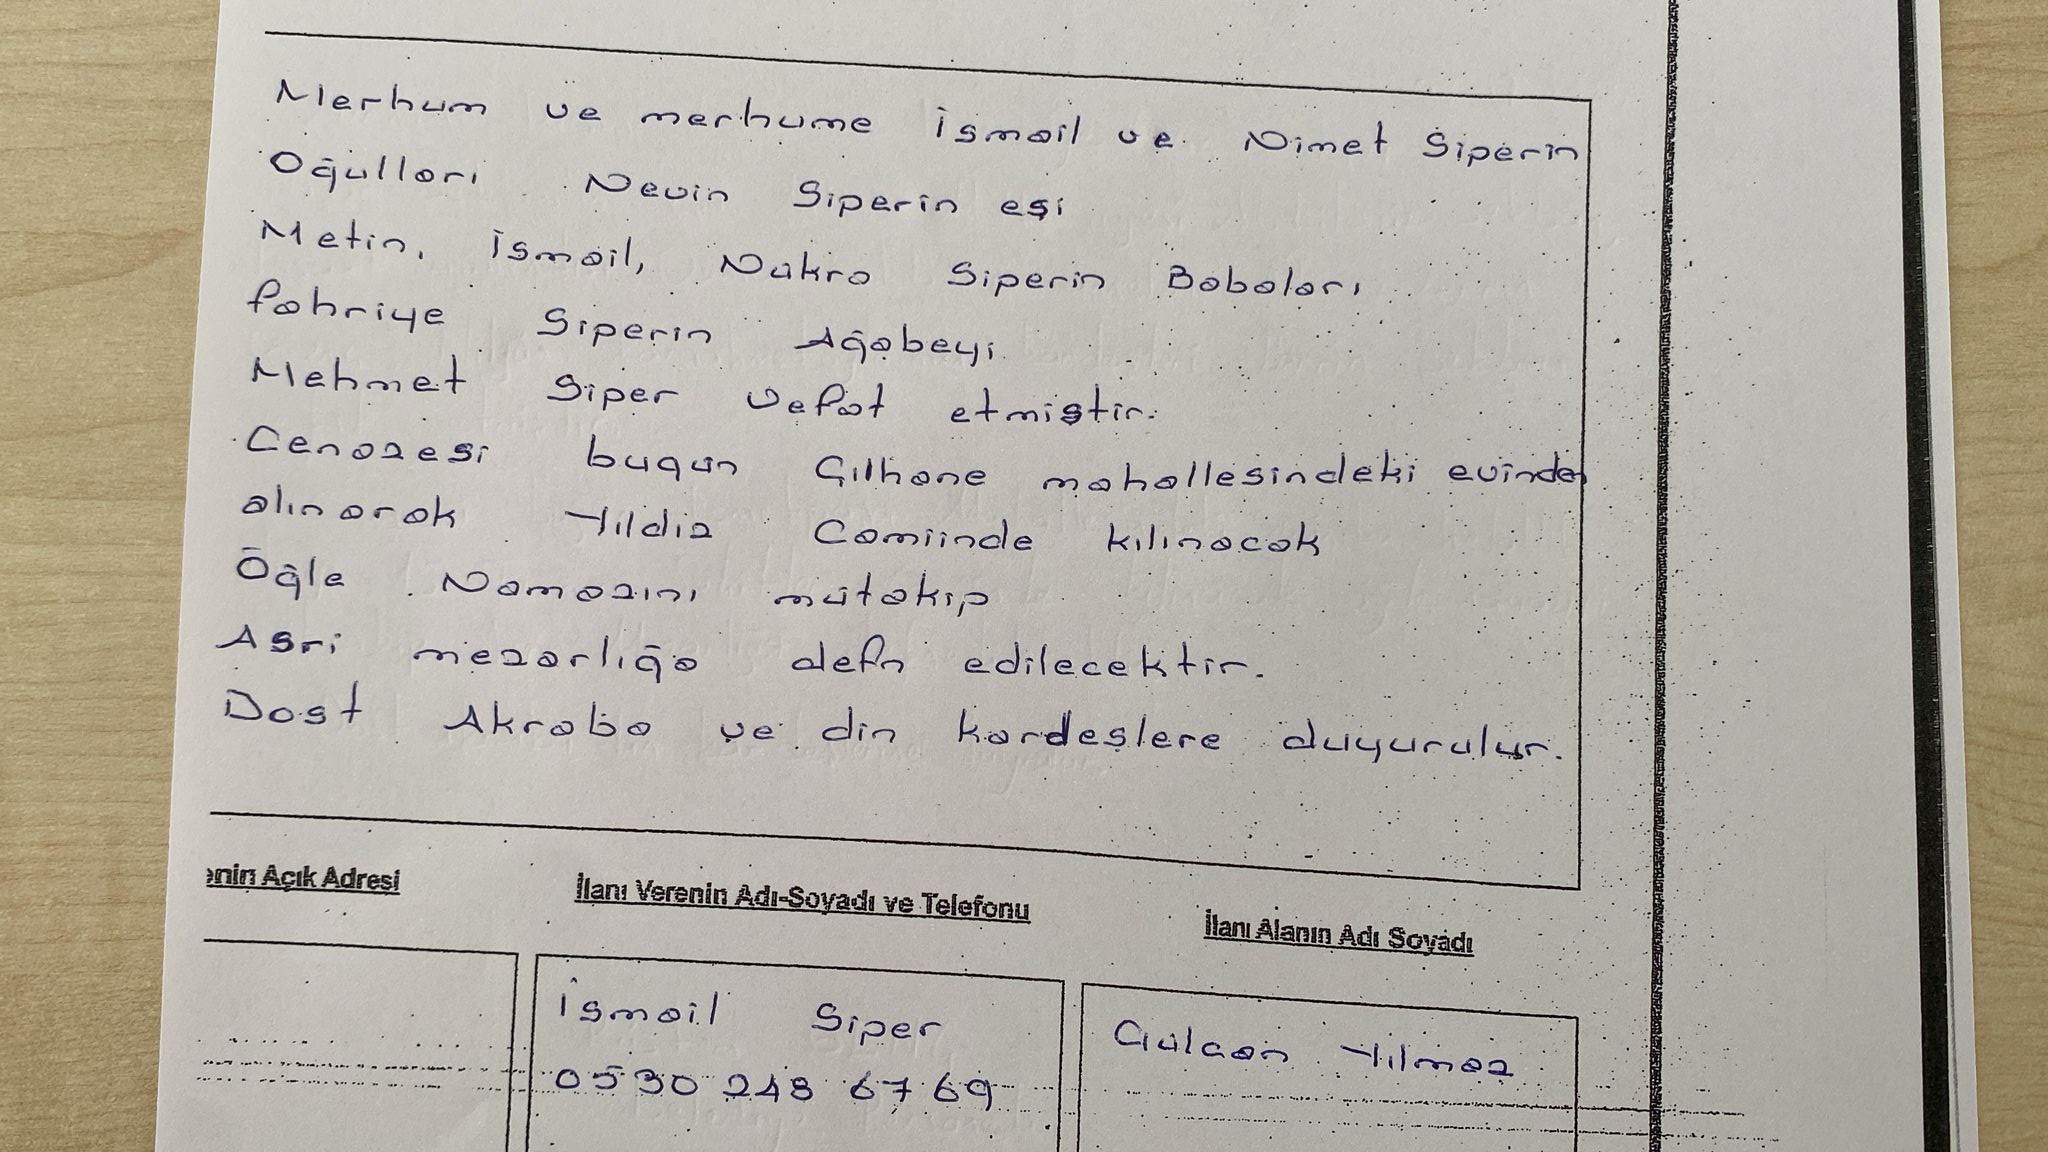 Merhum ve merhume İsmail ve Nimet Siperin
Oğulları Nevin Siperin eşi
Metin, İsmail, Nükra Siperin Babaları
fahriye Siperin Ağabeyi
Mehmet Siper Vefat etmiştir.
Cenazesi bugün Gılhane mahallesindeki evinden
alınarak Yıldız Camiinde kılınacak
Öğle Namazını mütakip
Asri mezarlığa defn edilecektir.
Dost Akraba ve din kardeşlere duyurulur.
enin Açık Adresi
İlanı Verenin Adı-Soyadı ve Telefonu
İlanı Alanın Adı Soyadı
İsmail Siper
0530 248 67 69
Gülcan Yılmaz